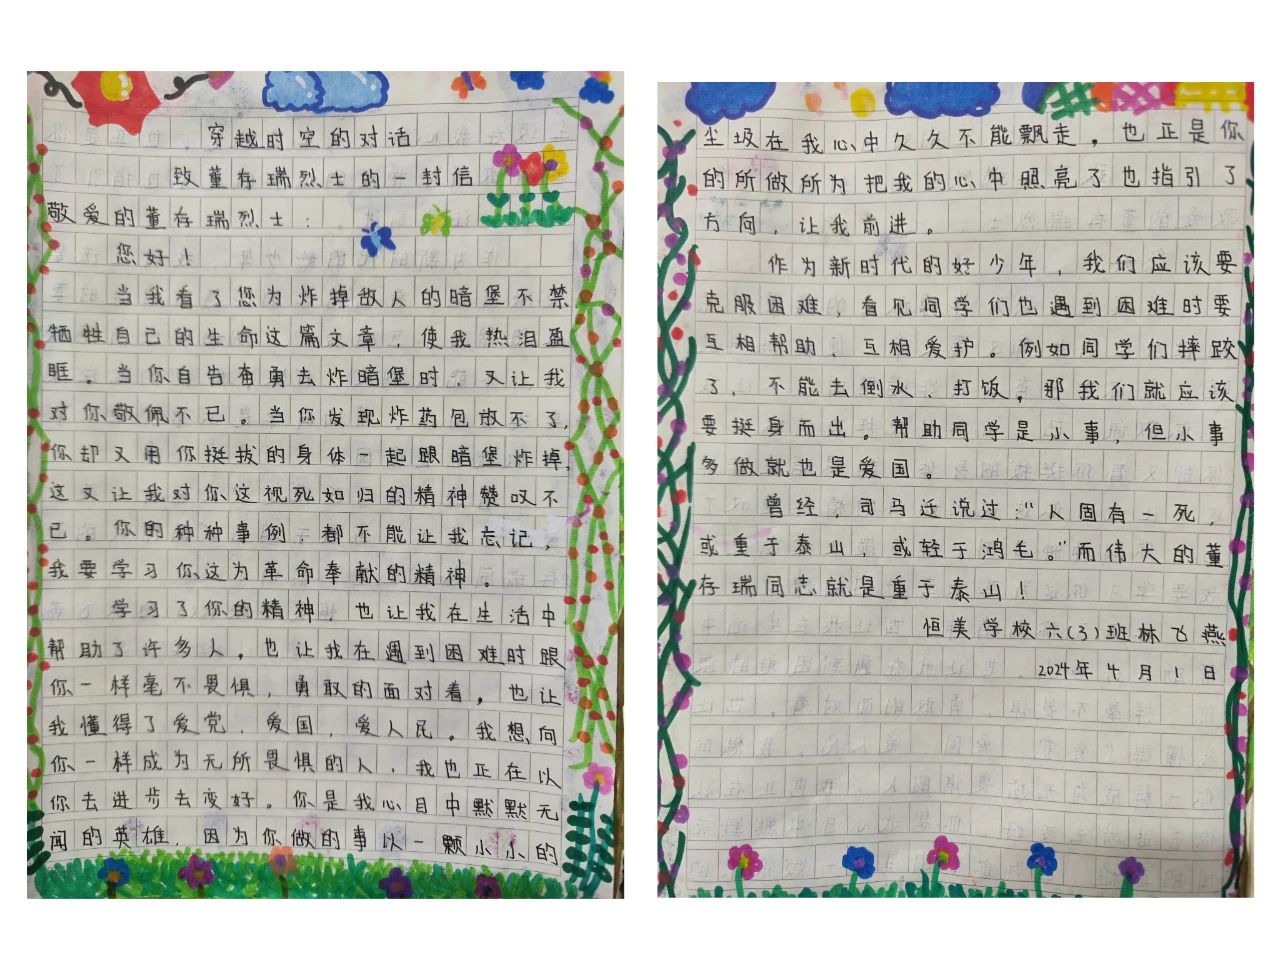 穿越时空的对话
致董存瑞烈士的一封信
敬爱的董存瑞烈士：
您好！
当我看了您为炸掉敌人的暗堡不禁
牺牲自己的生命这篇文章，使我热泪盈
眶。当你自告奋勇去炸暗堡时，又让我
对你敬佩不已。当你发现炸药包放不了，
你却又用你挺拔的身体一起跟暗堡炸掉，
这又让我对你这视死如归的精神赞叹不
已。你的种种事例，都不能让我忘记，
我要学习你这为革命奉献的精神。
学习了你的精神，也让我在生活中
帮助了许多人，也让我在遇到困难时跟
你一样毫不畏惧，勇敢的面对着，也让
我懂得了爱党，爱国，爱人民。我想向
你一样成为无所畏惧的人，我也正在以
你去进步去变好。你是我心目中默默无
闻的英雄，因为你做的事以一颗小小的
尘圾在我心中久久不能飘走，也正是你
的所做所为把我的心中照亮了也指引了
方向，让我前进。
作为新时代的好少年，我们应该要
克服困难，看见同学们也遇到困难时要
互相帮助、互相爱护。例如同学们摔跤
了，不能去倒水、打饭，那我们就应该
要挺身而出。帮助同学是小事，但小事
多做就也是爱国。
曾经，司马迁说过：“人固有一死，
或重于泰山，或轻于鸿毛。”而伟大的董
存瑞同志就是重于泰山！
恒美学校六(3)班林飞燕
2024年4月1日